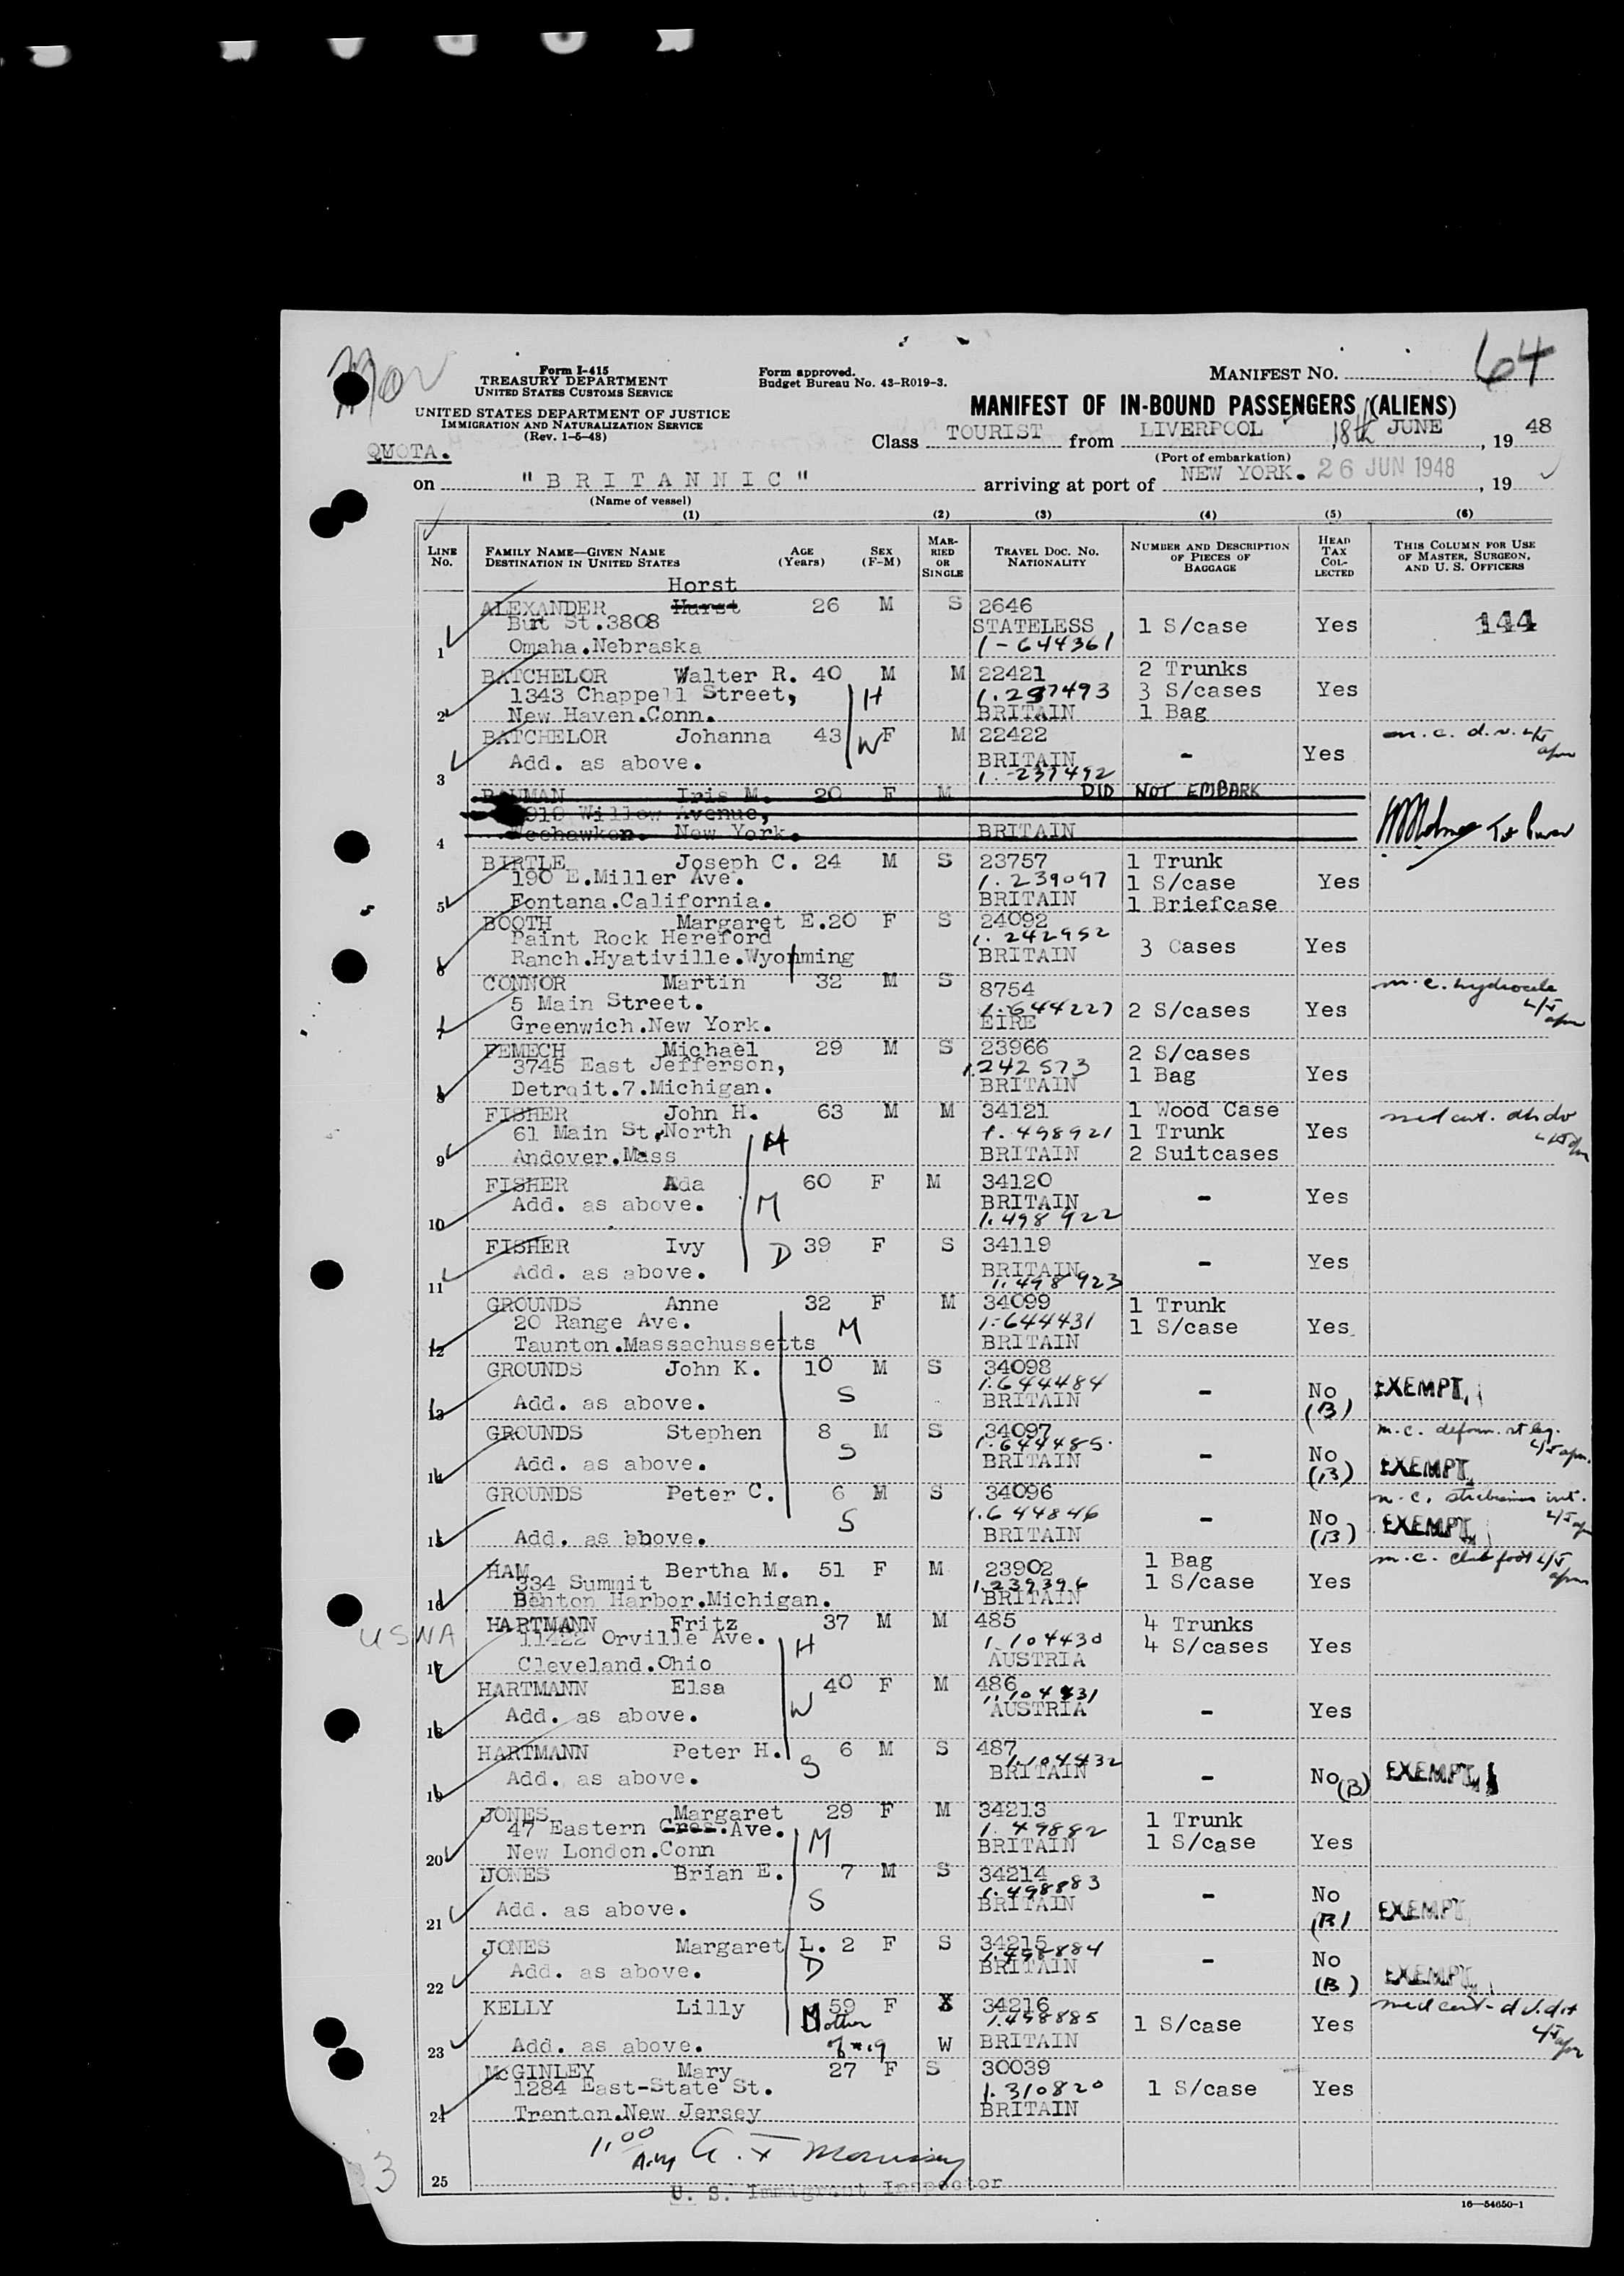 Nov
64
Form I-415
TREASURY DEPARTMENT
UNITED STATES CUSTOMS SERVICE
Form approved.
Budget Bureau No. 43-R019-3.
MANIFEST NO.
UNITED STATES DEPARTMENT OF JUSTICE
IMMIGRATION AND NATURALIZATION SERVICE
(Rev. 1-5-48)
MANIFEST OF IN-BOUND PASSENGERS (ALIENS)
QUOTA.
Class TOURIST from LIVERPOOL, 18th JUNE, 19 48
(Port of embarkation)
on "BRITANNIC" arriving at port of NEW YORK. 26 JUN 1948, 19
(Name of vessel)
(1) (2) (3) (4) (5) (6)
LINE NO. FAMILY NAME—GIVEN NAME DESTINATION IN UNITED STATES AGE (Years) SEX (F-M) MARRIED OR SINGLE TRAVEL DOC. NO. NATIONALITY NUMBER AND DESCRIPTION OF PIECES OF BAGGAGE HEAD TAX COLLECTED THIS COLUMN FOR USE OF MASTER, SURGEON, AND U. S. OFFICERS
Horst
ALEXANDER Hurst 26 M S 2646
Burt St.3808 STATELESS 1 S/case Yes 144
1 Omaha.Nebraska 1-644361
BATCHELOR Walter R. 40 M M 22421 2 Trunks
1343 Chappell Street, H 1.237493 3 S/cases Yes
2 New Haven.Conn. BRITAIN 1 Bag
BATCHELOR Johanna 43 W F M 22422 m.c. d.v.
Add. as above. BRITAIN - Yes
3 1.-237492
BAUMAN Iris M. 20 F M DID NOT EMBARK
910 Willow Avenue,
4 Weehawken. New York. BRITAIN
BIRTLE Joseph C. 24 M S 23757 1 Trunk
190 E.Miller Ave. 1.239097 1 S/case Yes
5 Fontana.California. BRITAIN 1 Briefcase
BOOTH Margaret E.20 F S 24092
Paint Rock Hereford 1.242952 3 Cases Yes
6 Ranch.Hyativille.Wyomming BRITAIN
CONNOR Martin 32 M S 8754 m.c. hydrocele
5 Main Street. 1.644227 2 S/cases Yes
7 Greenwich.New York. EIRE
FEMECH Michael 29 M S 23966 2 S/cases
3745 East Jefferson, 1.242573 1 Bag Yes
8 Detroit.7.Michigan. BRITAIN
FISHER John H. 63 M M 34121 1 Wood Case med cert.
61 Main St.North H 1.498921 1 Trunk Yes
9 Andover.Mass BRITAIN 2 Suitcases
FISHER Ada 60 F M 34120
Add. as above. M BRITAIN - Yes
10 1.498922
FISHER Ivy D 39 F S 34119
Add. as above. BRITAIN - Yes
11 1.498923
GROUNDS Anne 32 F M 34099 1 Trunk
20 Range Ave. M 1.644431 1 S/case Yes
12 Taunton.Massachussetts BRITAIN
GROUNDS John K. 10 M S 34098
S 1.644484 - No EXEMPT
13 Add. as above. BRITAIN (B)
GROUNDS Stephen 8 M S 34097 m.c. deform. rt leg.
S 1.644485 - No
14 Add. as above. BRITAIN (B) EXEMPT
GROUNDS Peter C. 6 M S 34096 m.c. strabismus int.
S 1.644846 - No
15 Add. as above. BRITAIN (B) EXEMPT
HAM Bertha M. 51 F M 23902 1 Bag m.c. club foot
334 Summit 1.239396 1 S/case Yes
16 Benton Harbor.Michigan. BRITAIN
USNA
HARTMANN Fritz 37 M M 485 4 Trunks
11422 Orville Ave. H 1.104430 4 S/cases Yes
17 Cleveland.Ohio AUSTRIA
HARTMANN Elsa 40 F M 486
W 1.104431
18 Add. as above. AUSTRIA - Yes
HARTMANN Peter H. 6 M S 487
S 1.104432
19 Add. as above. BRITAIN - No (B) EXEMPT
JONES Margaret 29 F M 34213 1 Trunk
47 Eastern Cres. Ave. M 1.49882 1 S/case Yes
20 New London.Conn BRITAIN
JONES Brian E. 7 M S 34214
S 1.498883 - No
21 Add. as above. BRITAIN (B) EXEMPT
JONES Margaret L. 2 F S 34215
D 1.498884 - No
22 Add. as above. BRITAIN (B) EXEMPT
KELLY Lilly 59 F 34216 med cert-
Mother 1.498885 1 S/case Yes
23 Add. as above. W BRITAIN
McGINLEY Mary 27 F S 30039
1284 East-State St. 1.310820 1 S/case Yes
24 Trenton.New Jersey BRITAIN
1.00 A.M
25
U. S. Immigrant Inspector
3
16—54650-1